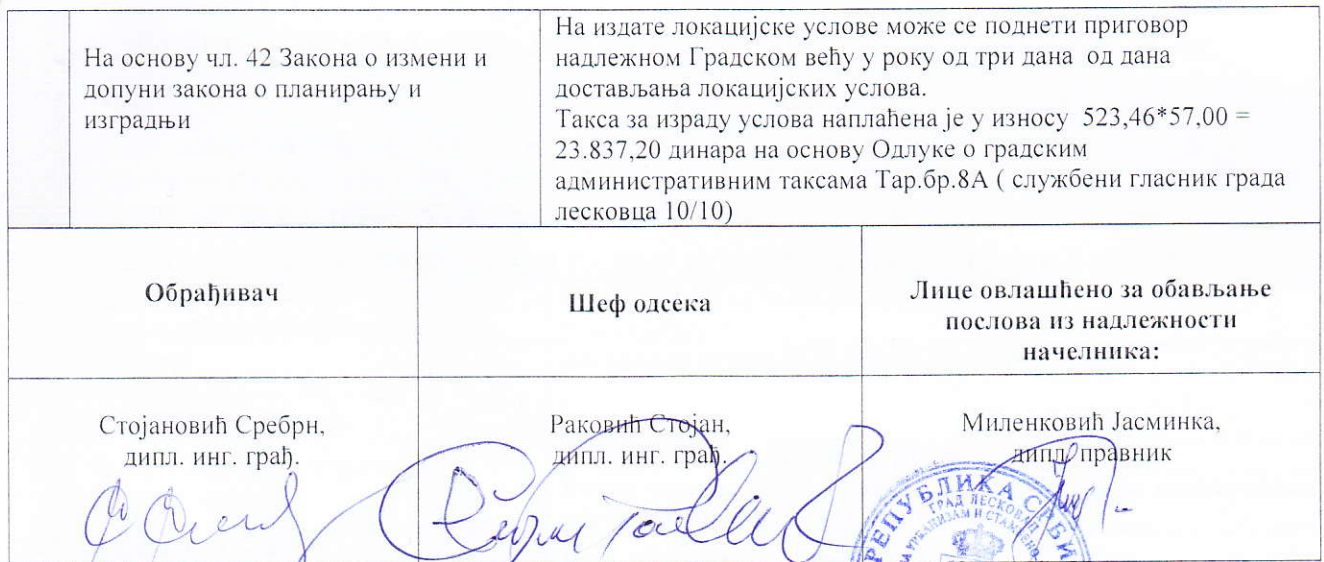 На основу чл. 42 Закона о измени и
допуни закона о планирању и
изградњи
На издате локацијске услове може се поднети приговор
надлежном Градском већу у року од три дана од дана
достављања локацијских услова.
Такса за израду услова наплаћена је у износу 523,46*57,00 =
23.837,20 динара на основу Одлуке о градским
административним таксама Тар.бр.8А ( службени гласник града
лесковца 10/10)
Обрађивач
Шеф одсека
Лице овлашћено за обављање
послова из надлежности
начелника:
Стојановић Сребрн,
дипл. инг. грађ.
Раковић Стојан,
дипл. инг. грађ.
Миленковић Јасминка,
дипл. правник
РЕПУБЛИКА
ГРАД